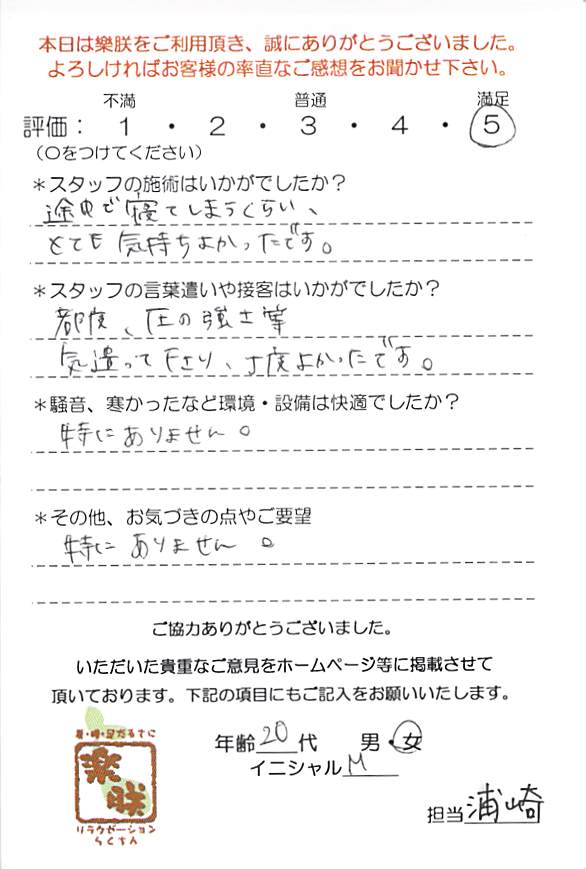 本日は樂朕をご利用頂き、誠にありがとうございました。
よろしければお客様の率直なご感想をお聞かせ下さい。
不満 普通 満足
評価： 1 ・ 2 ・ 3 ・ 4 ・ 5
（○をつけてください）
＊スタッフの施術はいかがでしたか？
途中で寝てしまうくらい、
とても気持ちよかったです。
＊スタッフの言葉遣いや接客はいかがでしたか？
都度、圧の強さ等
気遣って下さり、丁度よかったです。
＊騒音、寒かったなど環境・設備は快適でしたか？
特にありません。
＊その他、お気づきの点やご要望
特にありません。
ご協力ありがとうございました。
いただいた貴重なご意見をホームページ等に掲載させて
頂いております。下記の項目にもご記入をお願いいたします。
年齢 20 代 男・女
イニシャル M
肩・腰・足だるさに
楽朕
リラクゼーション
らくちん
担当 浦崎